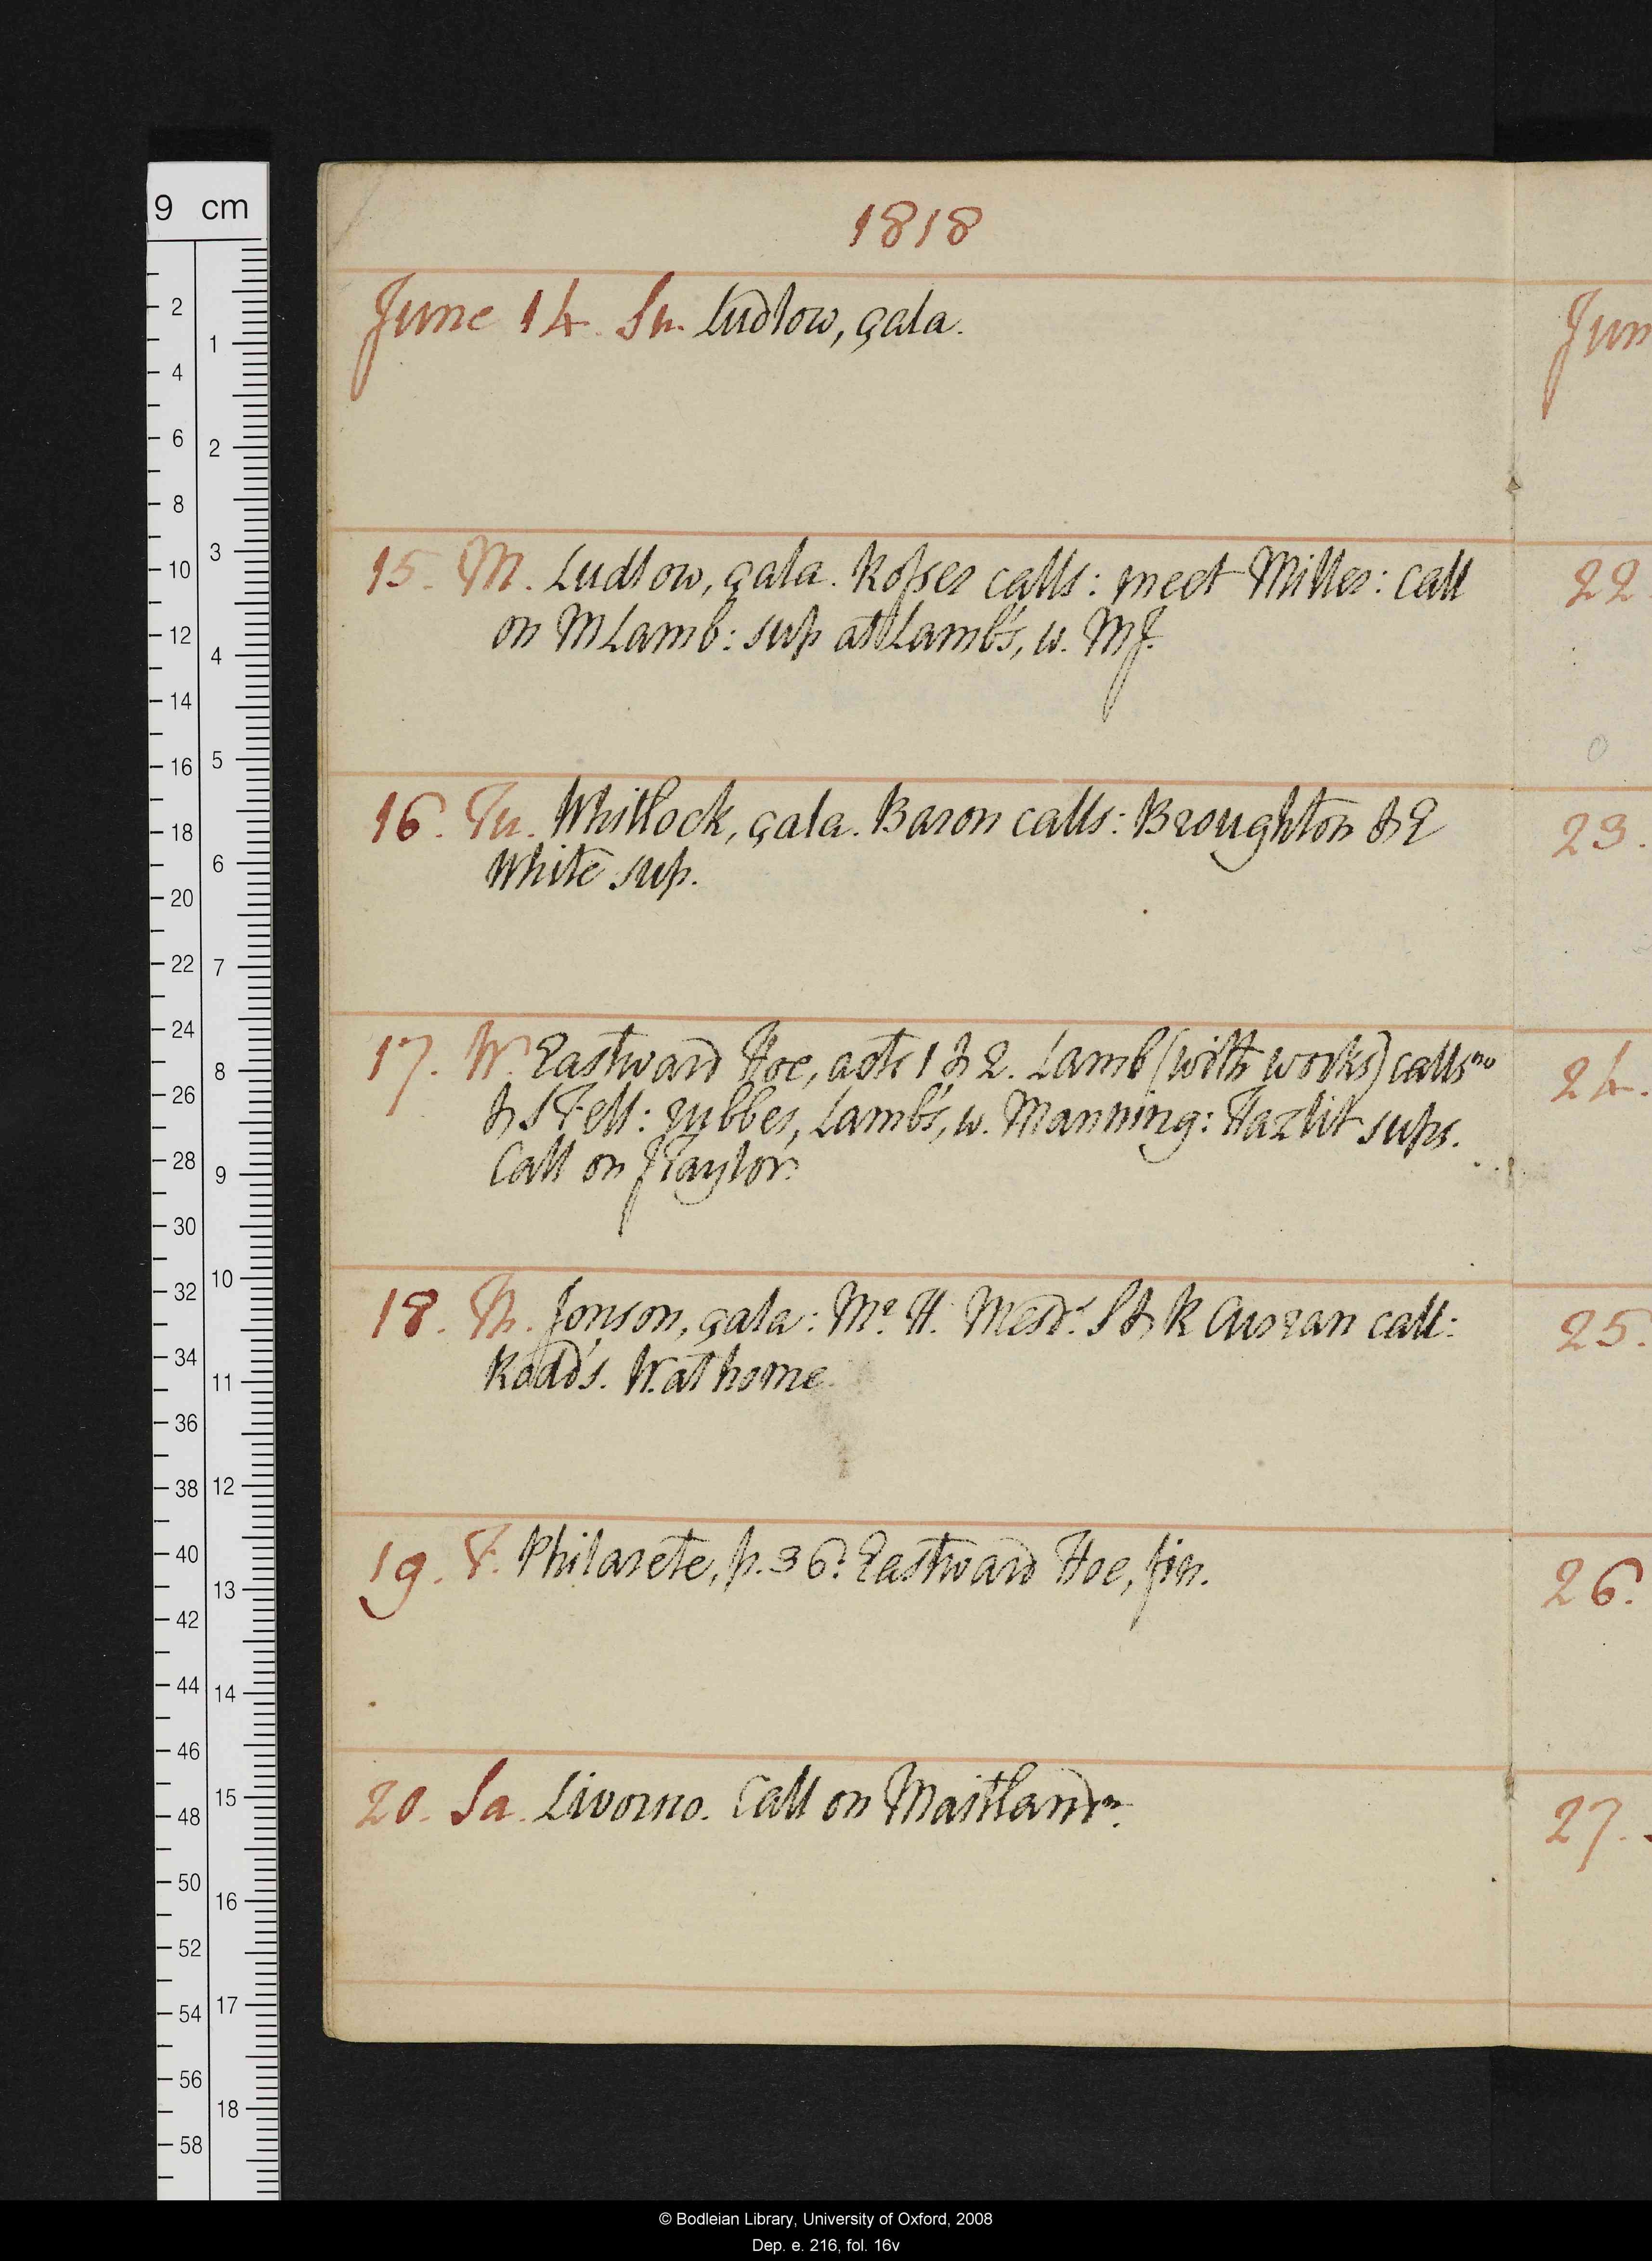 9 cm
1818
June 14. Su. Ludlow, çala.
15. M. Ludlow, çala. Rosser calls: meet Miller: call
on M Lamb: sup at Lamb's, w. MJ.
16. Tu. Whitlock, çala. Baron calls: Broughton & E
White sup.
17. W. Eastward Hoe, acts 1 & 2. Lamb (with works) calls no
& S Fell: rubber, Lamb's, w. Manning: Hazlit sups.
Call on J Taylor.
18. Th. Jonson, çala: Me. H. Mesds. S & R Curran call:
Rodd's. W. at home.
19. F. Philarete, p. 36. Eastward Hoe, fin.
20. Sa. Livorno. Call on Maitland n.
Jun
22.
23.
24.
25.
26.
27.
2
4
6
8
10
12
14
16
18
20
22
24
26
28
30
32
34
36
38
40
42
44
46
48
50
52
54
56
58
1
2
3
4
5
6
7
8
9
10
11
12
13
14
15
16
17
18
© Bodleian Library, University of Oxford, 2008
Dep. e. 216, fol. 16v